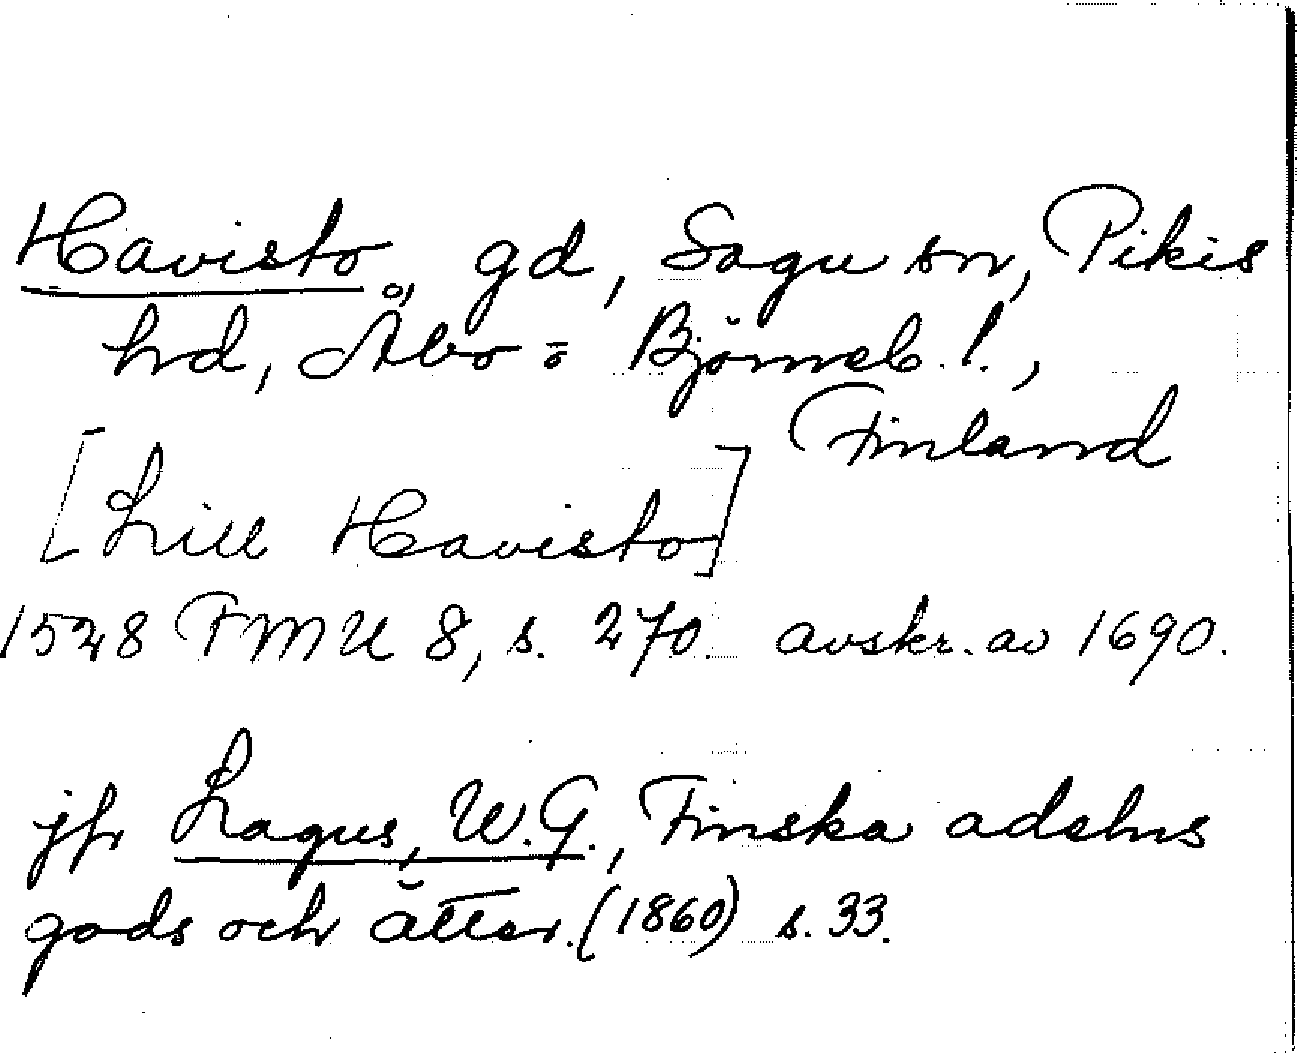 Havisto, gd, Sagu sn, Pikis
hd, Åbo = Björneb. l.,
Finland
[Lill Havisto]
1528 FMU 8, s. 270. avskr. av 1690.
jfr Lagus, W.G., Finska adelns
gods och ätter. (1860) s. 33.